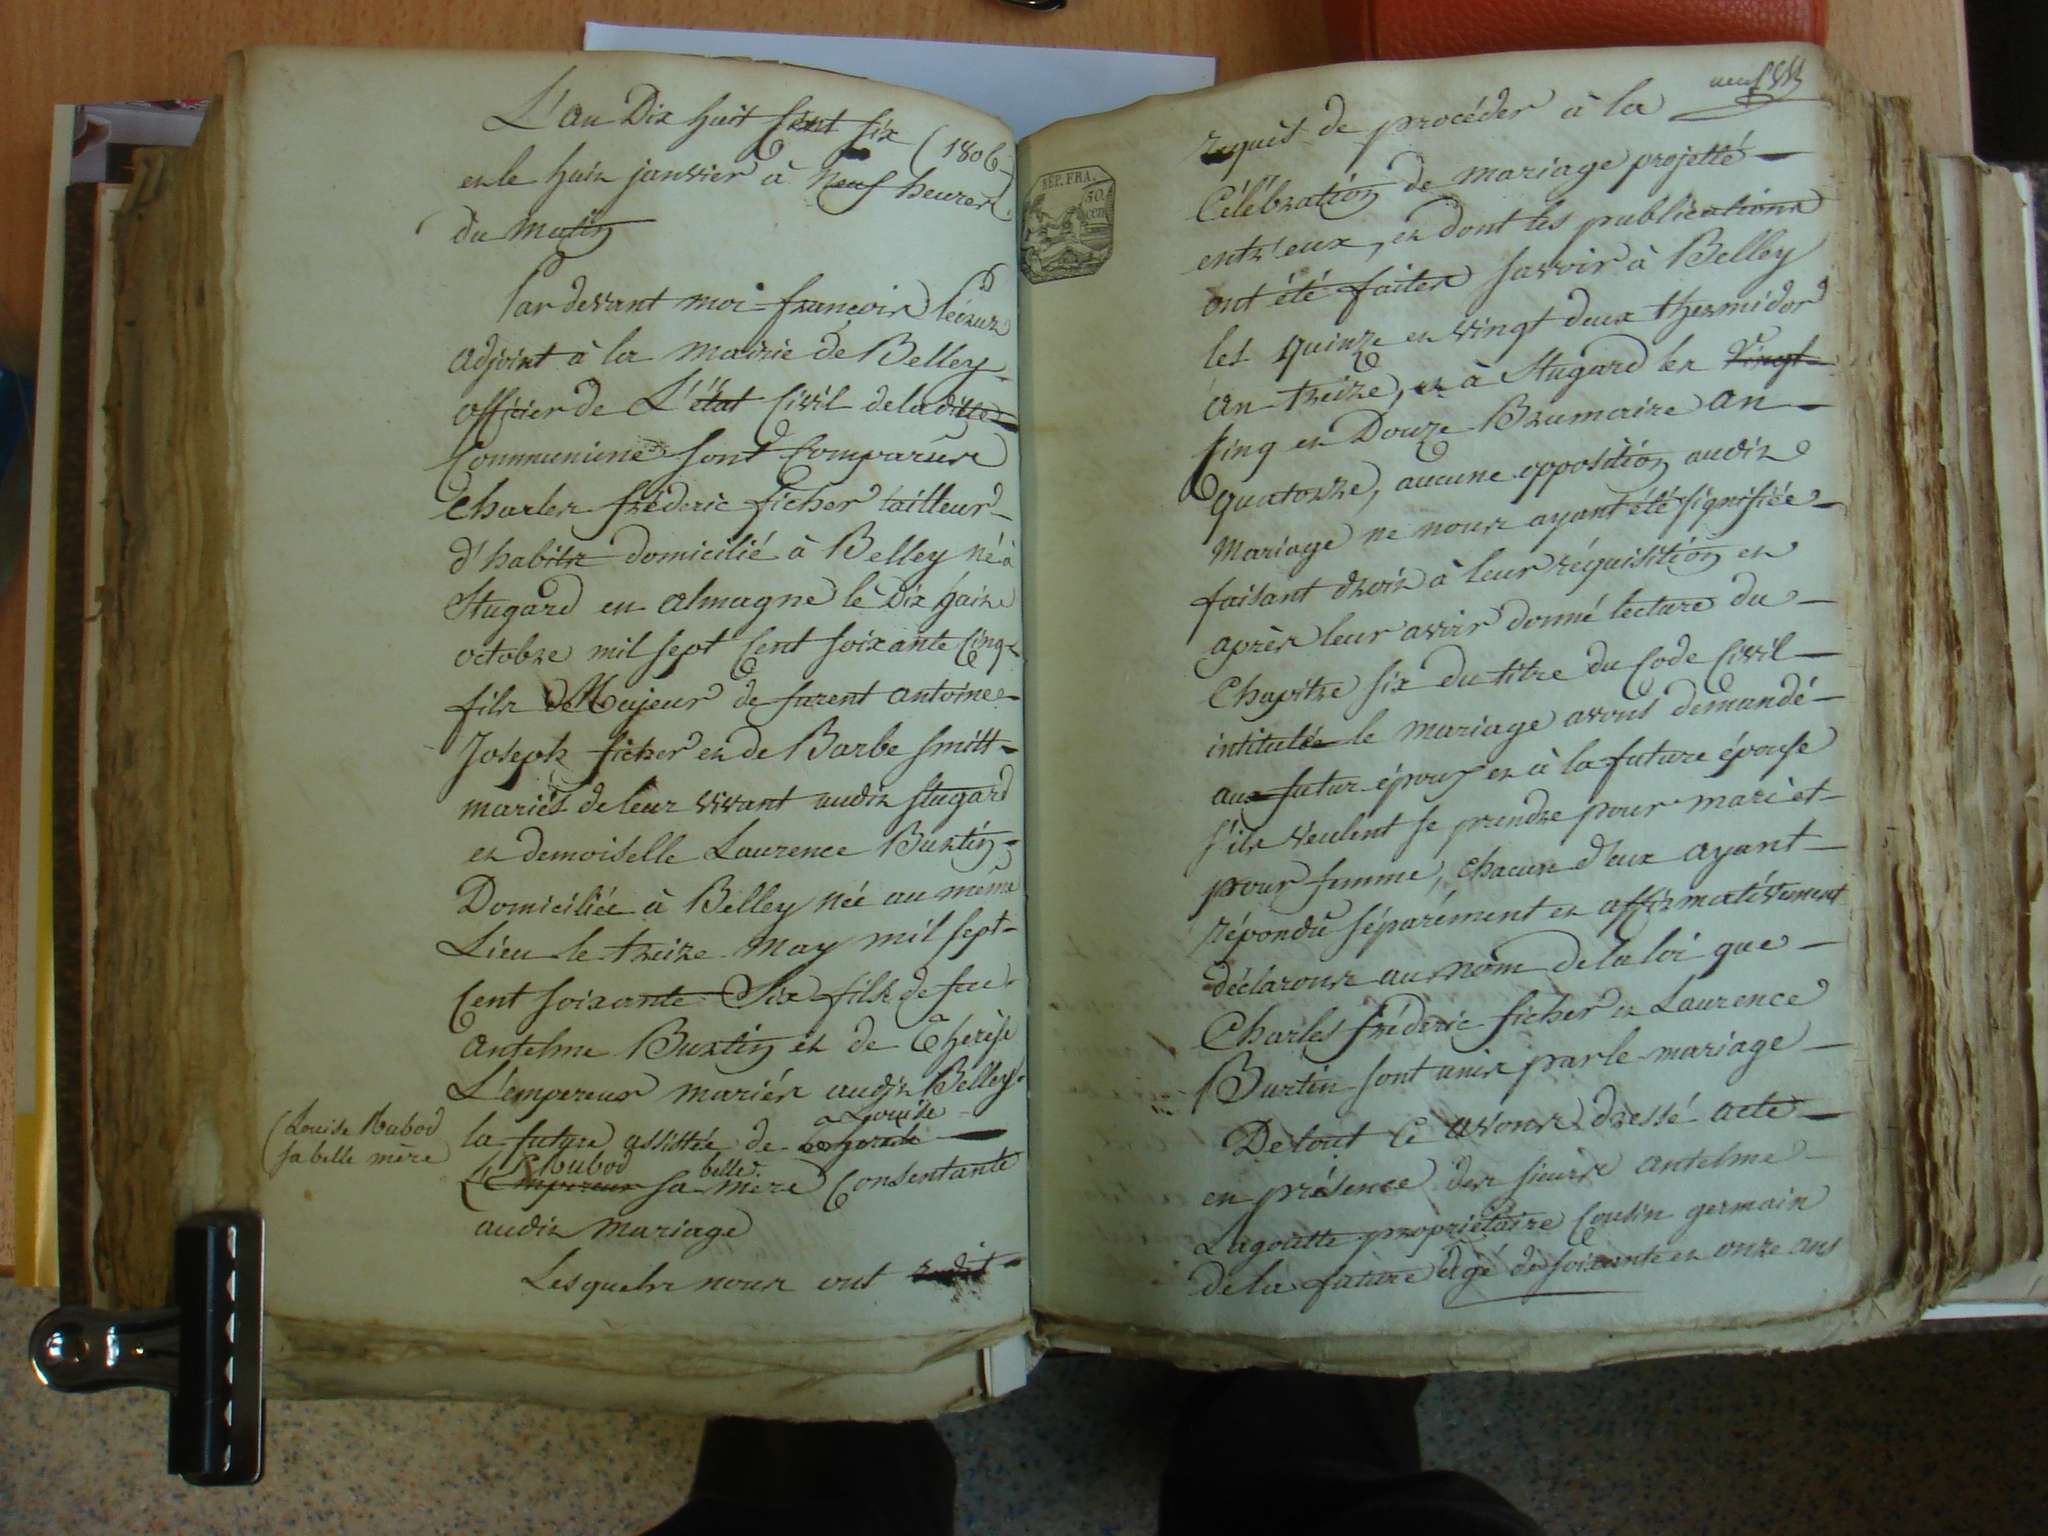 L'an Dix huit Cent six (1806)
et le huit janvier à Neuf heures
du Matin
Par devant moi françois
adjoint à la mairie de Belley
officier de L'état Civil de la ditte
Communune sont Comparus
Charles fréderic ficher tailleur
d'habits domicilié à Belley né à
Stugard en almagne le Dix huit
octobre mil sept Cent soixante Cinq
fils Majeur de furent antoine
Joseph ficher et de Barbe Smitt
mariés de leur vivant audit Stugard
et demoiselle Laurence Burtin
Domiciliée à Belley née au même
Lieu le treize May mil sept
Cent soixante Six fille de feu
Antelme Burtin et de Thérèse
L'empereur mariés audit Belley
Louise
la future assistée de
Rubod belle
L'empereur sa mère Consentante
audit mariage
Lesquels nous ont
(Louise Rubod
sa belle mère
neuf
requis de procéder à la
REP. FRA.
50
cen
Célébration de mariage projetté
entr'eux, et dont les publications
ont été faites savoir à Belley
les quinze et vingt deux thermidor
an treize, et à Stugard les vingt
Cinq et Douze Brumaire an
quatorze, aucune opposition audit
Mariage ne nous ayant été signifiée
faisant droit à leur réquisition et
après leur avoir donné lecture du
Chapitre six du titre du Code Civil
intitulé le mariage avons demandé
au futur époux et à la future épouse
s'ils veulent se prendre pour mari et
pour femme, chacun d'eux ayant
répondu séparément et affirmativement
déclarons au nom de la loi que
Charles fréderic ficher et Laurence
Burtin sont unis par le mariage
De tout Ce avons dressé acte
en présence des sieurs antelme
Lagoutte propriétaire Cousin germain
de la future agé de soixante et onze ans